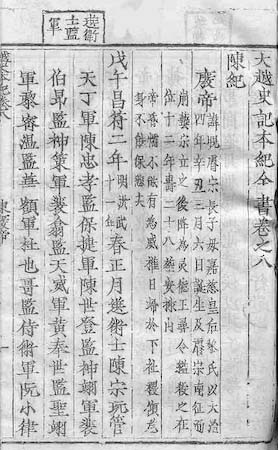 選衛
士監
軍
大越史記本紀全書卷之八
陳紀
廢帝
諱晛睿宗長子母嘉慈皇后黎氏以大治
四年辛丑三月六日誕生及睿宗南征而
崩藝宗立之後降為灵德王尋令縊殺之在
位十二年壽二十八葬安排山
帝昏懦不能有為威權日歸於下社稷傾危
身不能保悲夫
戊午昌符二年明洪武十一年春正月選衛士陳宗玩管
天丁軍陳忠孝監保捷軍陳世登監神翊軍裴
伯昂監神策軍裴翁監天威軍黃奉世監聖翊
軍黎睿温監華額軍杜也哥監侍衛軍阮小律